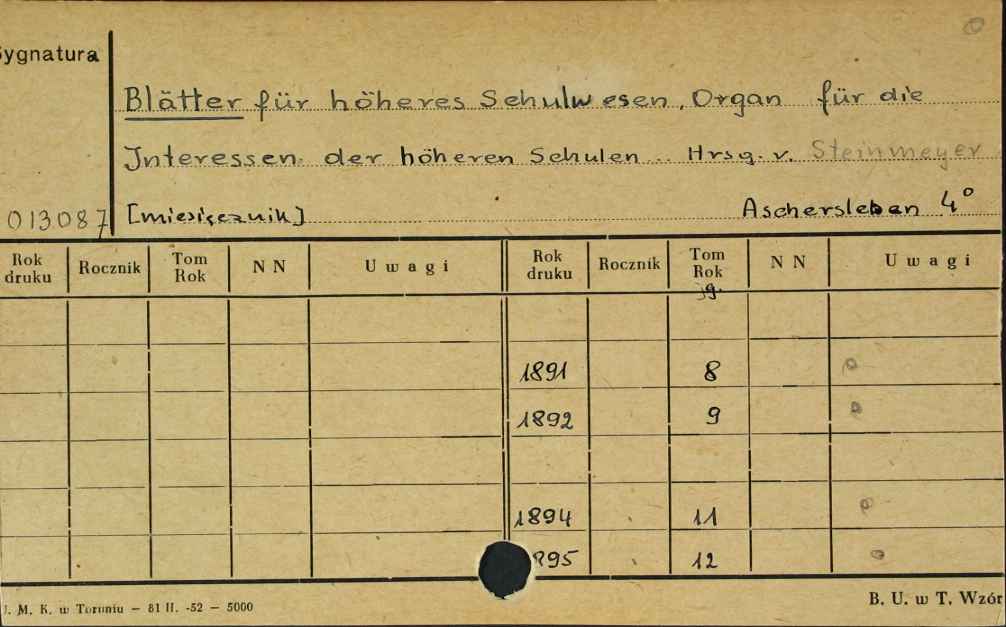 Sygnatura
Blätter für höheres Schulwesen, Organ für die
Interessen der höheren Schulen... Hrsg. v. Steinmeyer
013087 [miesięcznik] Aschersleben 4°
Rok druku Rocznik Tom Rok N N Uwagi Rok druku Rocznik Tom Rok N N Uwagi
Jg.
1891 8
1892 9
1894 11
895 12
U. M. K. w Toruniu — 81 II. -52 — 5000 B. U. w T. Wzór